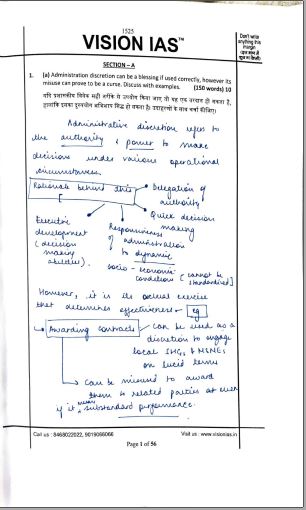 1525
VISION IAS™
Don't write anything this margin
SECTION – A
1. (a) Administration discretion can be a blessing if used correctly, however its misuse can prove to be a curse. Discuss with examples. (150 words) 10
यदि प्रशासनिक विवेक सही तरीके से उपयोग किया जाए तो यह एक वरदान हो सकता है,
हालांकि इसका दुरुपयोग अभिशाप सिद्ध हो सकता है। उदाहरणों के साथ चर्चा कीजिए।
Administrative discretion refers to
the authority & power to make
decisions under various operational
circumstances.
Rationale behind this
Delegation of
authority
Quick decision
making
Executive
development
(decision
making
abilities).
Responsiveness
of administration
to dynamic
socio-economic
condition (cannot be
standardised)
However, it is its actual exercise
that determines effectiveness - eg
Awarding contracts
can be used as a
discretion to engage
local SHGs & MSMEs
on lucid terms
Can be misused to award
them to related parties at even
if it substandard performance.
Call us : 8468022022, 9019066066
Visit us : www.visionias.in
Page 1 of 56